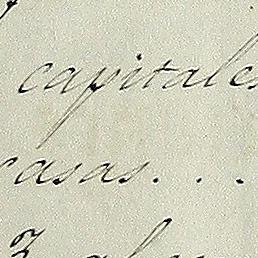 capitales
casas. . .